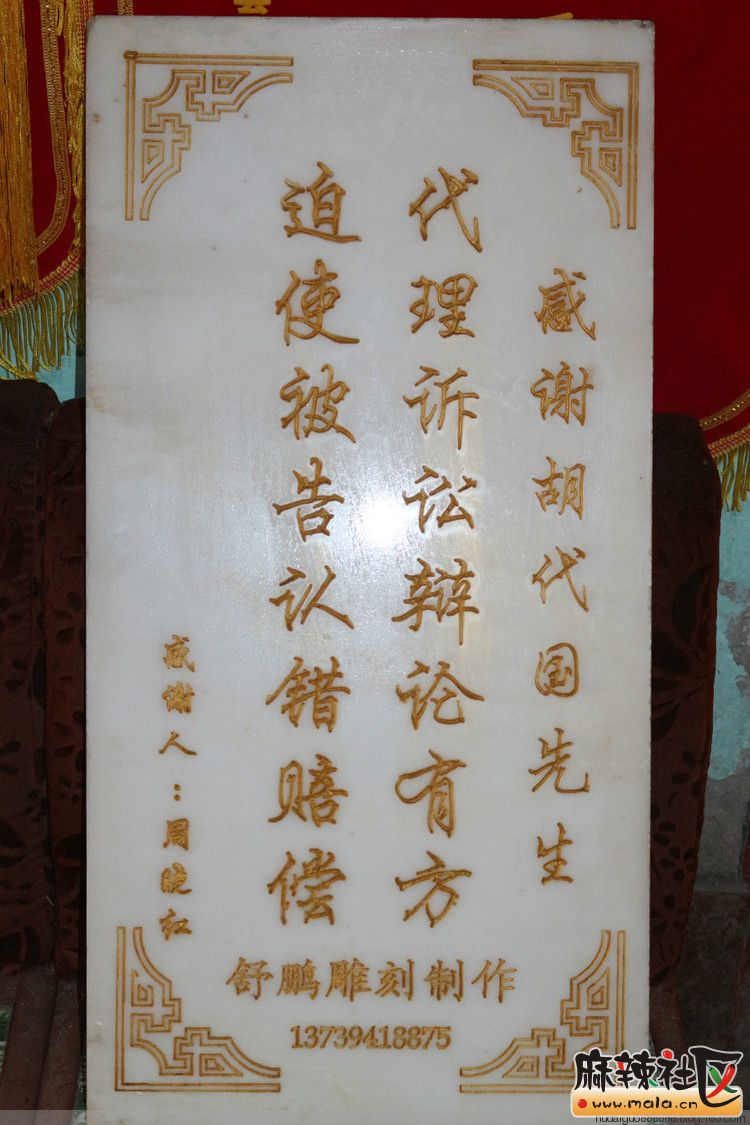 感谢胡代国先生
代理诉讼辩论有方
迫使被告认错赔偿
感谢人：周晓红
舒鹏雕刻制作
13739418875
麻辣社区
www.mala.cn